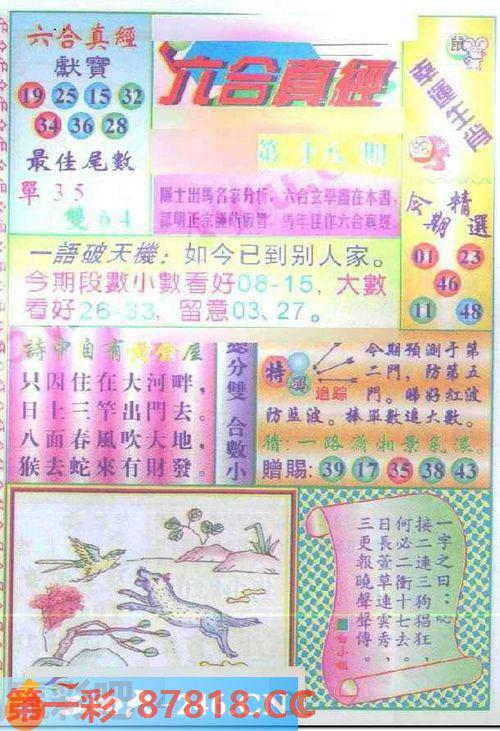 六合真經
獻寶
19 25 15 32
34 36 28
最佳尾數
單35
雙64
六合真經
第十八期
隱士出馬名家分析，六合玄學盡在本書，
認明正宗謹防假冒，馬年佳作六合真經
鼠
幸運生肖
蛇
今期精選
01 23
46
11 48
一語破天機：如今已到别人家。
今期段數小數看好08-15，大數
看好26-33，留意03、27。
詩中自有黃金屋
只因住在大河畔，
日上三竿出門去。
八面春風吹大地，
猴去蛇來有財發。
總分雙 合數小
特碼
追踪
今期預測于第
二門，防第五
門。睇好紅波
防藍波。棒單數追大數。
猜：一路瀟湘景氣濃。
贈賜：39 17 35 38 43
一字之曰：吣
接二連三狗猖狂，
何必二衝十七去。
日長萱草連雲秀，
三更報曉聲聲傳。
白小姐
第一彩 87818.CC